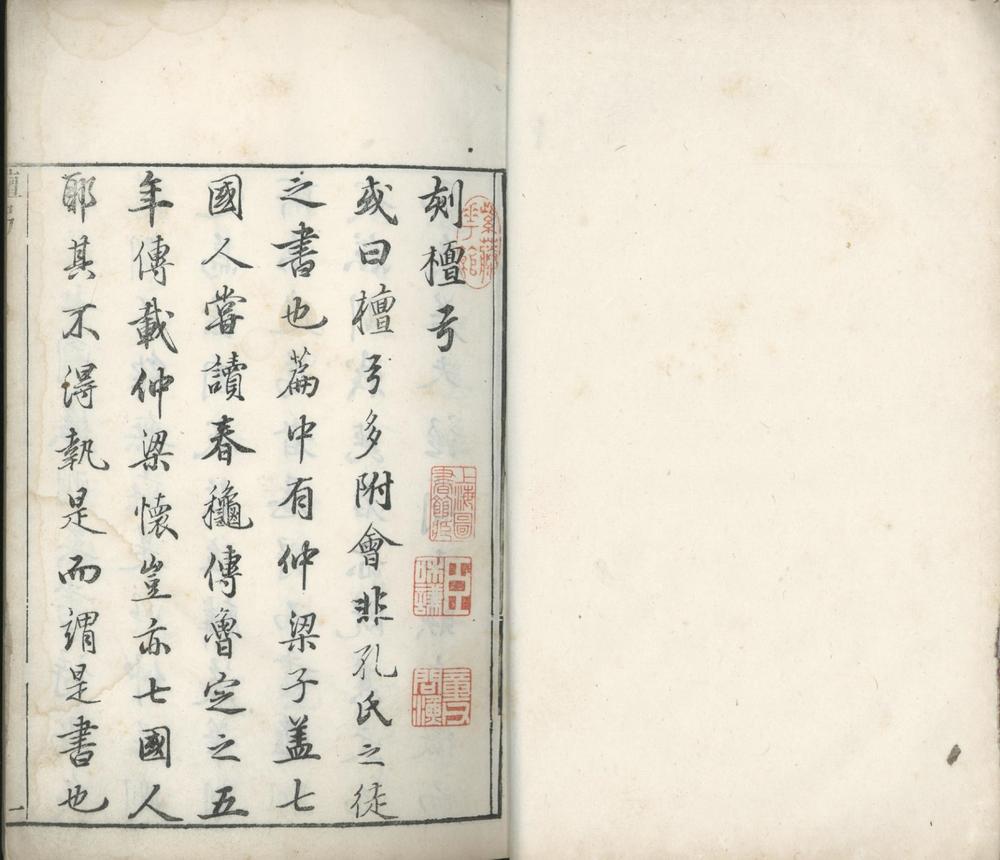 刻檀弓
或曰檀弓多附會非孔氏之徒
之書也篇中有仲梁子盖七
國人嘗讀春龝傳魯定之五
年傳載仲梁懷豈亦七國人
耶其不得執是而謂是書也
紫藤
華館
上海圖
書館藏
檀弓
一